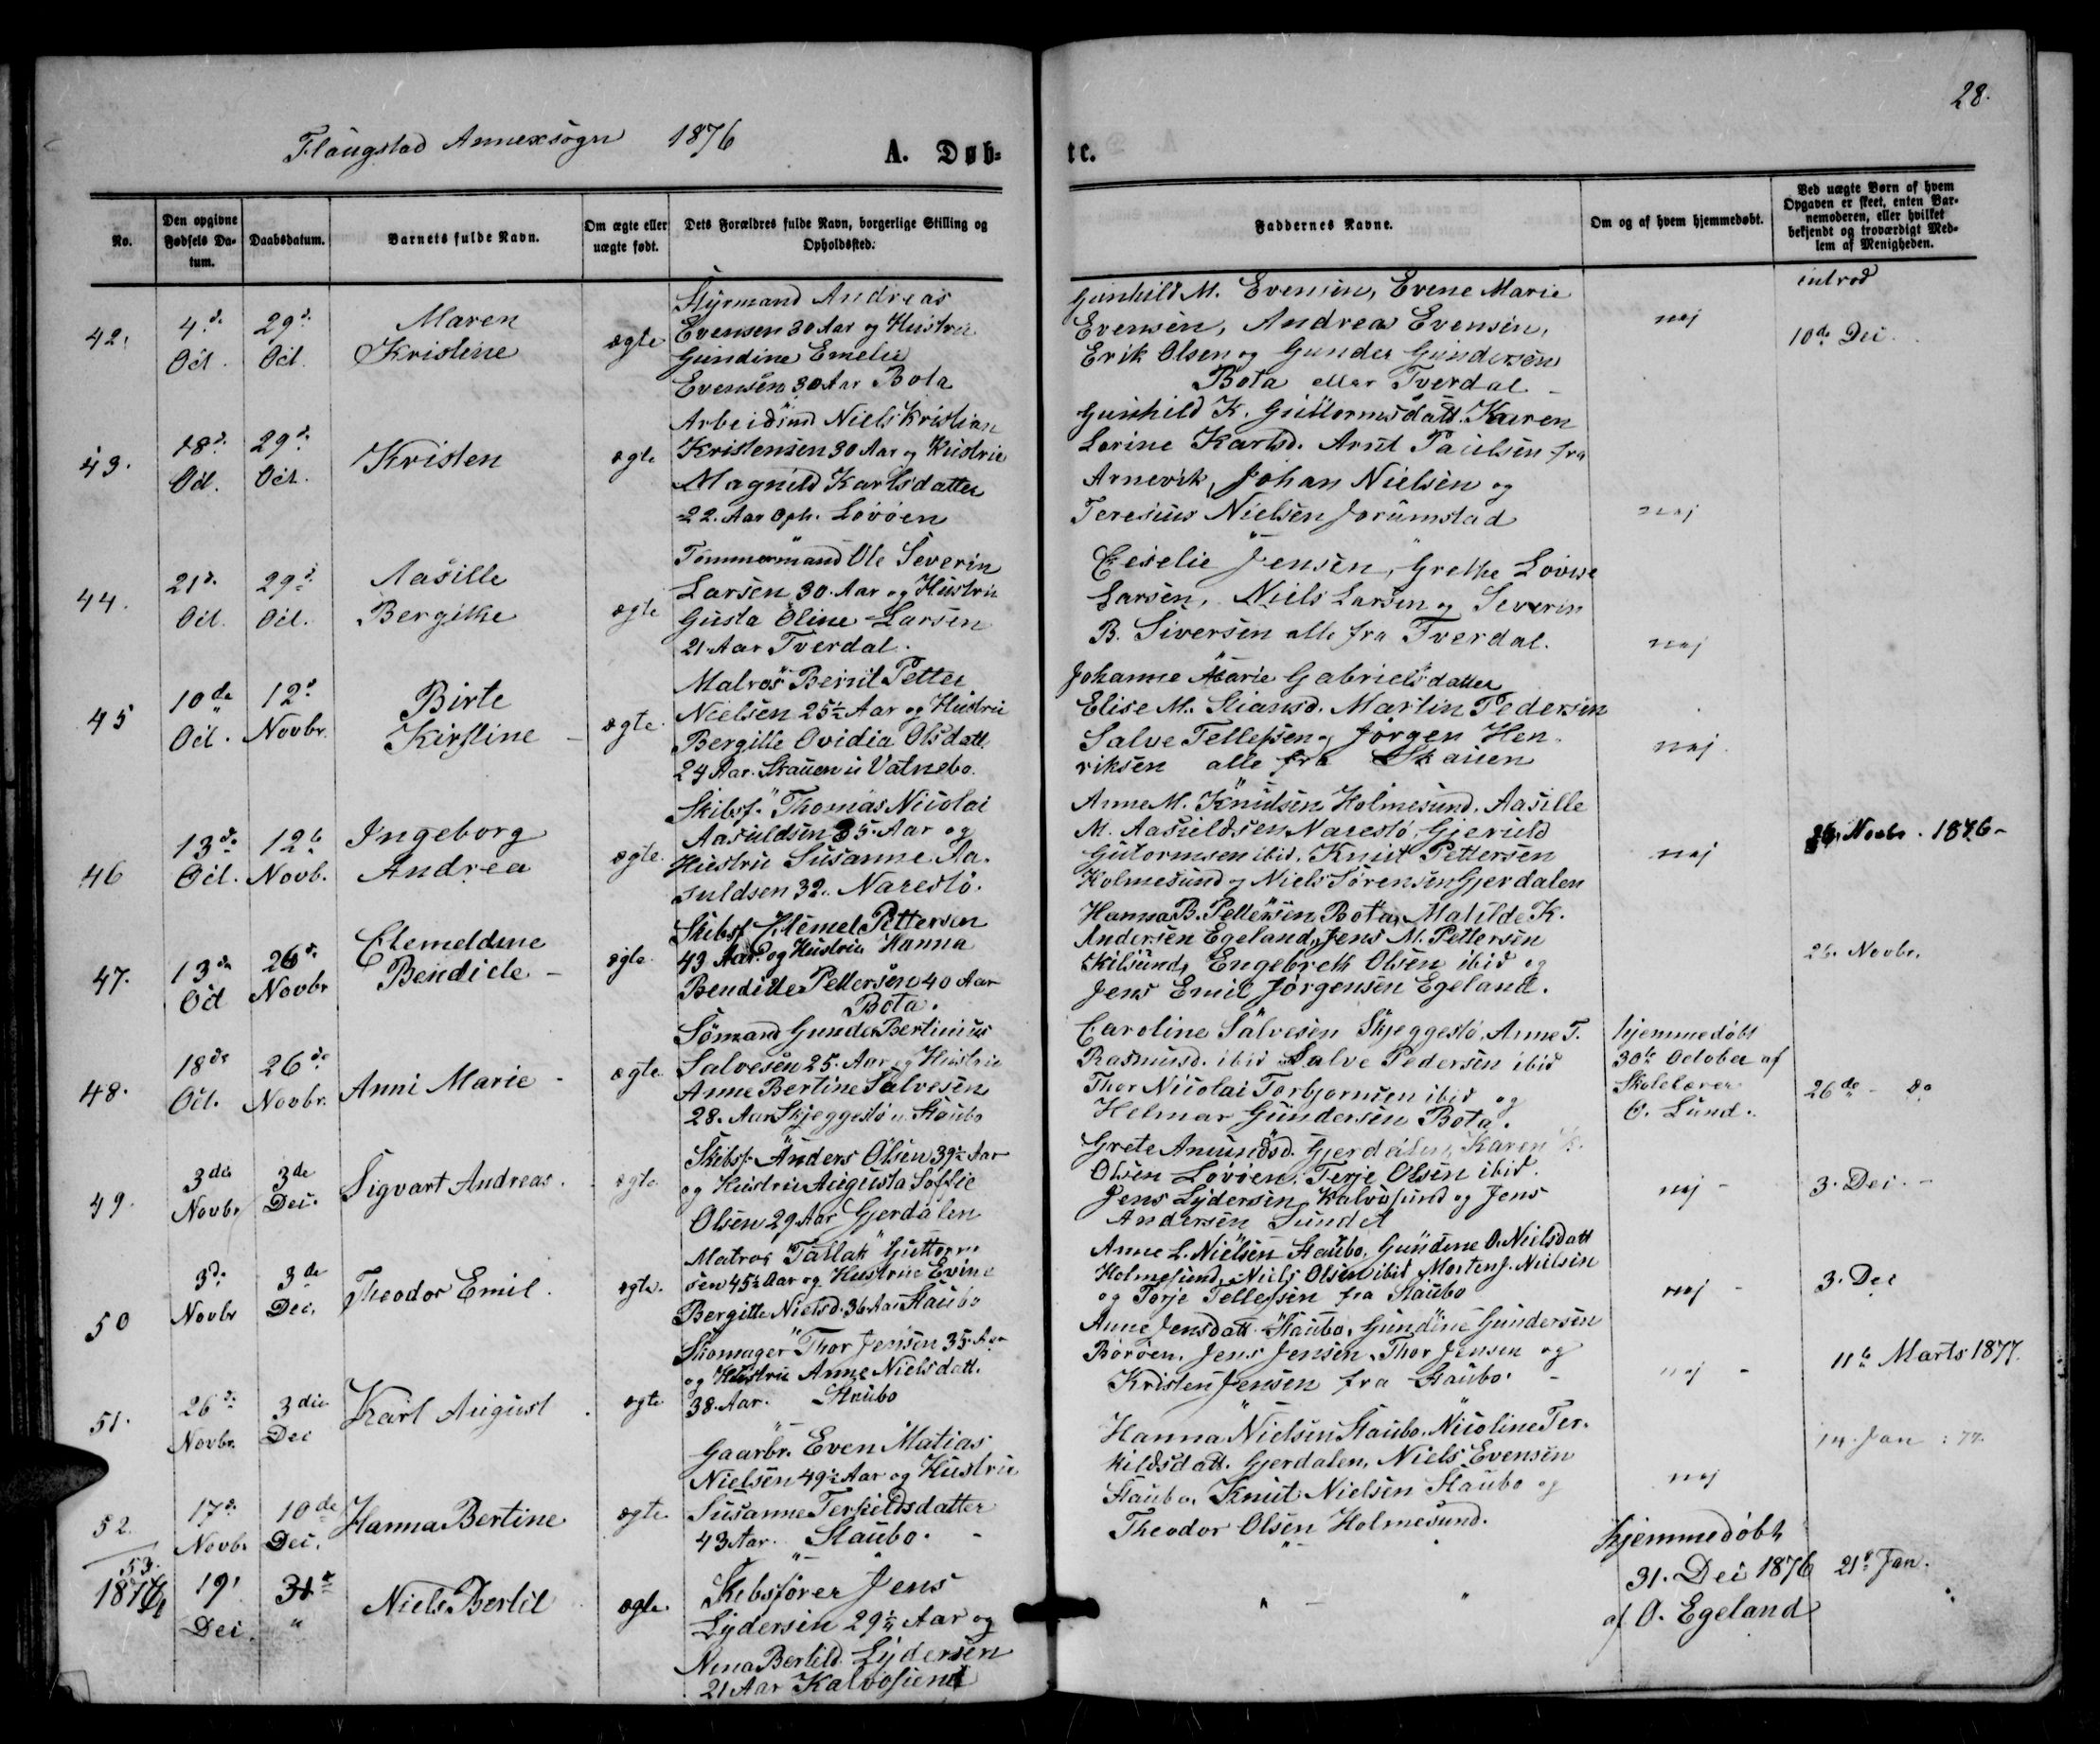 28.
Flaugstad Annexsogn 1876
A. Døb-
te.
No.
Den opgivne Fødsels Da-
tum.
Daabsdatum.
Barnets fulde Navn.
Om ægte eller
uægte født.
Dets Forældres fulde Navn, borgerlige Stilling og
Opholdssted.
Faddernes Navne.
Om og af hvem hjemmedøbt.
Ved uægte Børn af hvem
Opgaven er skeet, enten Bar-
nemoderen, eller hvilket
bekjendt og troværdigt Med-
lem af Menigheden.
42.
4de
Oct.
29de
Oct.
Maren
Kristine
ægte
Styrmand Andreas
Evensen 30 Aar og Hustru
Gundine Emelie
Evensen 30 Aar Bota
Gunhild M. Evensen, Evene Marie
Evensen, Andrea Evensen,
Erik Olsen og Gunder Gundersen
Bota eller Tverdal
nej
introd
10de Dec.
43.
18de
Oct.
29de
Oct.
Kristen
ægte
Arbeidsmd Niels Kristian
Kristensen 30 Aar og Hustrue
Magnild Karlsdatter
22. Aar Oph. Lovøen
Gunhild K. Guttormsdatt. Karen
Lorine Karlsd. Arnt Paulsen fra
Arnevik, Johan Nielsen og
Teresius Nielsen Jorumstad
nej
44.
21de
Oct.
29de
Oct.
Aasille
Bergithe
ægte
Tømmermand Ole Severin
Larsen 30. Aar og Hustru
Gusta Oline Larsen
21. Aar Tverdal.
Ceselie Jensen, Grethe Lovise
Larsen, Niels Larsen og Severin
B. Siversen alle fra Tverdal.
nej
45
10de
Oct.
12de
Novbr.
Birte
Kirstine
ægte.
Matros Bernt Petter
Nielsen 25½ Aar og Hustru
Bergitte Ovidia Olsdatt.
24 Aar. Skauen u Vatnebo.
Johanne Marie Gabrielsdatter
Elise M. Stiansd. Martin Pedersen
Salve Tellefsen og Jørgen Hen-
riksen alle fra Skauen
nej.
46
13de
Oct.
12te
Novb.
Ingeborg
Andrea
ægte.
Skibsf. Thomas Nicolai
Aasuldsen 35. Aar og
Hustru Susanne Aa-
suldsen 32. Narestø.
Anne M. Knutsen Holmesund. Aasille
M. Aasuldsen Narestø, Gjeruld
Gutormsen ibid. Knut Pettersen
Holmesund og Niels Sørensen Gjerdalen
nej
26 Novbr. 1876
47.
13de
Oct
26de
Novbr
Clemeldine
Bendicte
ægte.
Skibsf. Clemet Pettersen
43 Aar og Hustru Hanna
Bendicte Pettersen 40 Aar
Bota.
Hanna B. Pettersen Bota, Matilde K.
Andersen Egeland, Jens M. Pettersen
Kilsund, Engebreth Olsen ibid og
Jens Emil Jørgensen Egeland.
26. Novbr.
48.
18de
Oct.
26de
Novbr.
Anni Marie
ægte.
Sømand Gunder Bertinius
Salvesen 25. Aar og Hustru
Anne Bertine Salvesen
28. Aar Skjeggestø u. Staubo
Caroline Salvesen Skjeggestø, Anne T.
Rasmusd. ibid Salve Pedersen ibid
Thor Nicolai Torbjornsen ibid og
Helmar Gundersen Bota.
hjemmedøbt
30te October af
Skolelærer
O. Lund.
26de - do
49.
3die
Novbr
3de
Dec.
Sigvart Andreas.
ægte
Skibsf. Anders Olsen 39½ Aar
og Hustru Augusta Soffie
Olsen 29 Aar Gjerdalen
Grete Amundsd. Gjerdalen, Karen K.
Olsen Lovøen. Terje Olsen ibid.
Jens Lydersen Kalvøsund og Jens
Andersen Sundet
nej
3. Dec.
50
3de
Novbr
3de
Dec.
Theodor Emil.
ægte.
Matros Tallak Guttorm-
sen 45½ Aar og Hustrue Evine
Bergitte Nielsd. 36 Aar Staubo
Anne L. Nielsen Staubo, Gundine O. Nielsdatt
Holmesund, Niels Olsen ibid Morten J. Nielsen
og Torje Tellefsen fra Staubo
nej
3. Dec
51.
26de
Novbr.
3die
Dec
Karl August
ægte
Skomager Thor Jensen 35 Aar
og Hustru Anne Nielsdatt.
38. Aar. Staubo
Anne Jensdatt. Staubo, Gundine Gundersen
Borøen, Jens Jensen, Thor Jensen og
Kristen Jensen fra Staubo.
nej
11te Marts 1877.
52.
17de
Novbr
10de
Dec.
Hanna Bertine
ægte
Gaarbr. Even Matias
Nielsen 49½ Aar og Hustrue
Susanne Terkieldsdatter
43 Aar. Staubo.
Hanna Nielsen Staubo, Nicoline Ter-
kildsdatt. Gjerdalen, Niels Evensen
Staubo, Knut Nielsen Staubo og
Theodor Olsen Holmesund.
nej
14. Jan: 77.
53.
1876
19
Dec.
31te
"
Niels Bertil
ægte.
Skibsfører Jens
Lydersen 29½ Aar og
Nina Bertild Lydersen
21 Aar Kalvøsund
hjemmedøbt
31. Dec 1876
af O. Egeland
21de Jan.